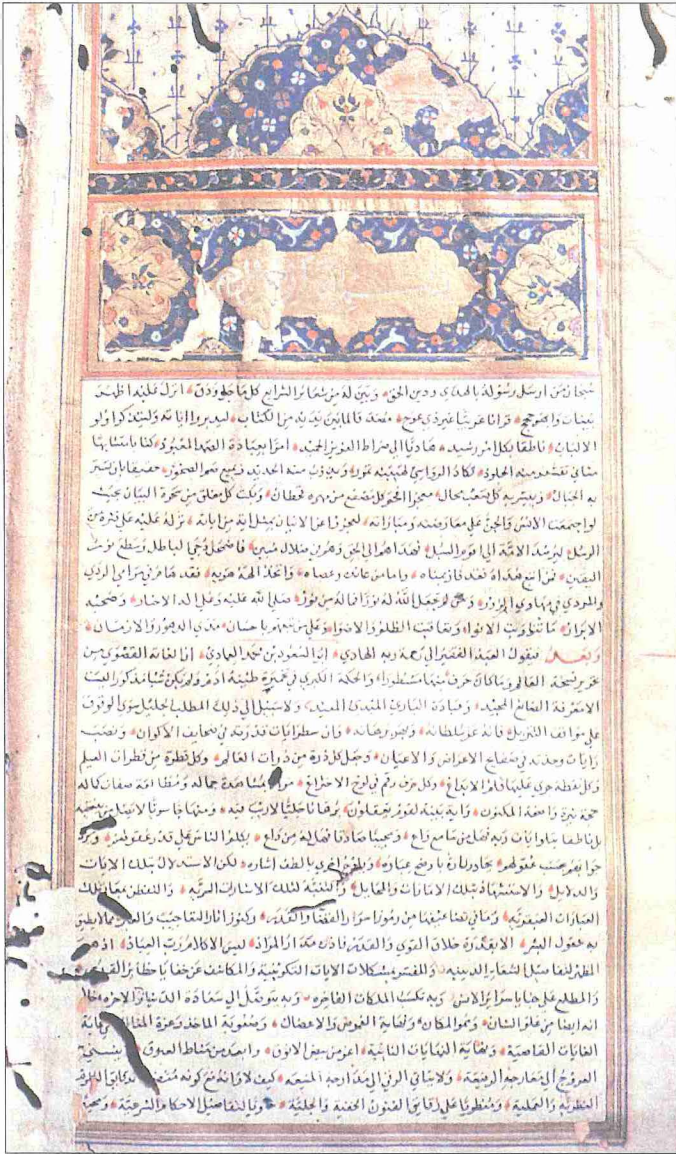 سبحان من ارسل رسوله بالهدى ودين الحق وبين له من شعائر الشرايع كل ما جل ودق انزل عليه اظهر
بينات وابهر حجج قرانا عربيا غير ذي عوج مصدقا لما بين يديه من الكتاب ليدبروا اياته وليتذكر اولو
الالباب ناطقا بكل امر رشيد هاديا الى صراط العزيز الحميد امرا بعبادة الصمد المعبود كتابا متشابها
مثاني تقشعر منه الجلود تكاد الرواسي لهيبته تمور ويذوب منه الحديد ويميع صم الصخور حقيقا بان يسير
به الجبال وييسر به كل صعب محال معجزا افحم كل مصقع من مهرة قحطان وبكت كل مفلق من سحرة البيان بحيث
لو اجتمعت الانس والجن على معارضته ومباراته لعجزوا عن الاتيان بمثل اية من اياته نزله عليه على فترة من
الرسل ليرشد الامة الى اقوم السبل فهداهم الى الحق وهم في ضلال مبين فاضمحل دجى الباطل وسطع نور
اليقين فمن اتبع هداه فقد فاز بمناه واما من عانده وعصاه واتخذ الهه هويه فقد هام في موامي الردي
والمردي في مهاوي الزور ومن لم يجعل الله له نورا فما له من نور صلى الله عليه وعلى اله الاخيار وصحبه
الابرار ما تناوبت الانواء وتعاقبت الظلم والاضواء وعلى من تبعهم باحسان مدى الدهور والازمان
وبعد فيقول العبد الفقير الى رحمة ربه الهادي ابو السعود بن محمد العمادي ان الغاية القصوى من
تحرير نسخة العالم وما كان حرف منها مسطورا والحكمة الكبرى في تخمير طينة ادم ولم يكن شيئا مذكورا ليست
الا معرفة الصانع المجيد وعبادة البارئ المبدئ المعيد ولا سبيل الى ذلك المطلب الجليل سوى الوقوف
على مواقف التنزيل فانه عز سلطانه وبهر برهانه وان سطر ايات قدرته في صحايف الاكوان ونصب
رايات وحدته في صفايح الاعراض والاعيان وجعل كل ذرة من ذرات العالم وكل قطرة من قطرات العلم
وكل نقطة جرى عليها قلم الابداع وكل حرف رقم في لوح الاختراع مراة لمشاهدة جماله ومطالعة صفات كماله
حجة نيرة واضحة المكنون واية بينة لقوم يعقلون برهانا جليا لا ريب فيه ومنهاجا سويا لا يضل من ينتحيه
بل ناطقا يتلو ايات ربه فهل من سامع واع ومجيبا صادقا فهل له من داع يكلم الناس على قدر عقولهم ويرد
جوابهم بحسب مقولهم يحاور تارة باوضح عبارة ويلوح اخرى بالطف اشارة لكن الاستدلال بتلك الايات
والدلايل والاستشهاد بتلك الامارات والمخايل والتنبه لتلك الاشارات السرية والتفطن لمعاني تلك
العبارات العبقرية وما في تضاعيفها من رموز اسرار القضاء والقدر وكنوز اثار التعاجيب والعبر مما لا يطيق
به عقول البشر الا بتوفيق خلاق القوى والقدر فاذن مدار المراد ليس الا كلام رب العباد اذ هو
المظهر لتفاصيل الشعاير الدينية والمفسر لمشكلات الايات التكوينية والكاشف عن خفايا حظاير القدس
والمطلع على خبايا سراير الانس وبه تكتسب الملكات الفاخرة وبه يتوصل الى سعادة الدنيا والاخرة خلا
انه ايضا من علو الشان وسمو المكان ونهاية الغموض والاعضال وصعوبة الماخذ وعزة المنال في غاية
الغايات القاصية ونهاية النهايات النائية اعز من بيض الانوق وابعد من مناط العيوق لا يتسنى
العروج الى معارجه الرفيعة ولا يتاتى الرقي الى مدارجه المنيعة كيف لا وانه مع كونه متضمنا لدقايق العلوم
النظرية والعملية ومنطويا على دقايق الفنون الخفية والجلية حاويا لتفاصيل الاحكام الشرعية ومحيطا